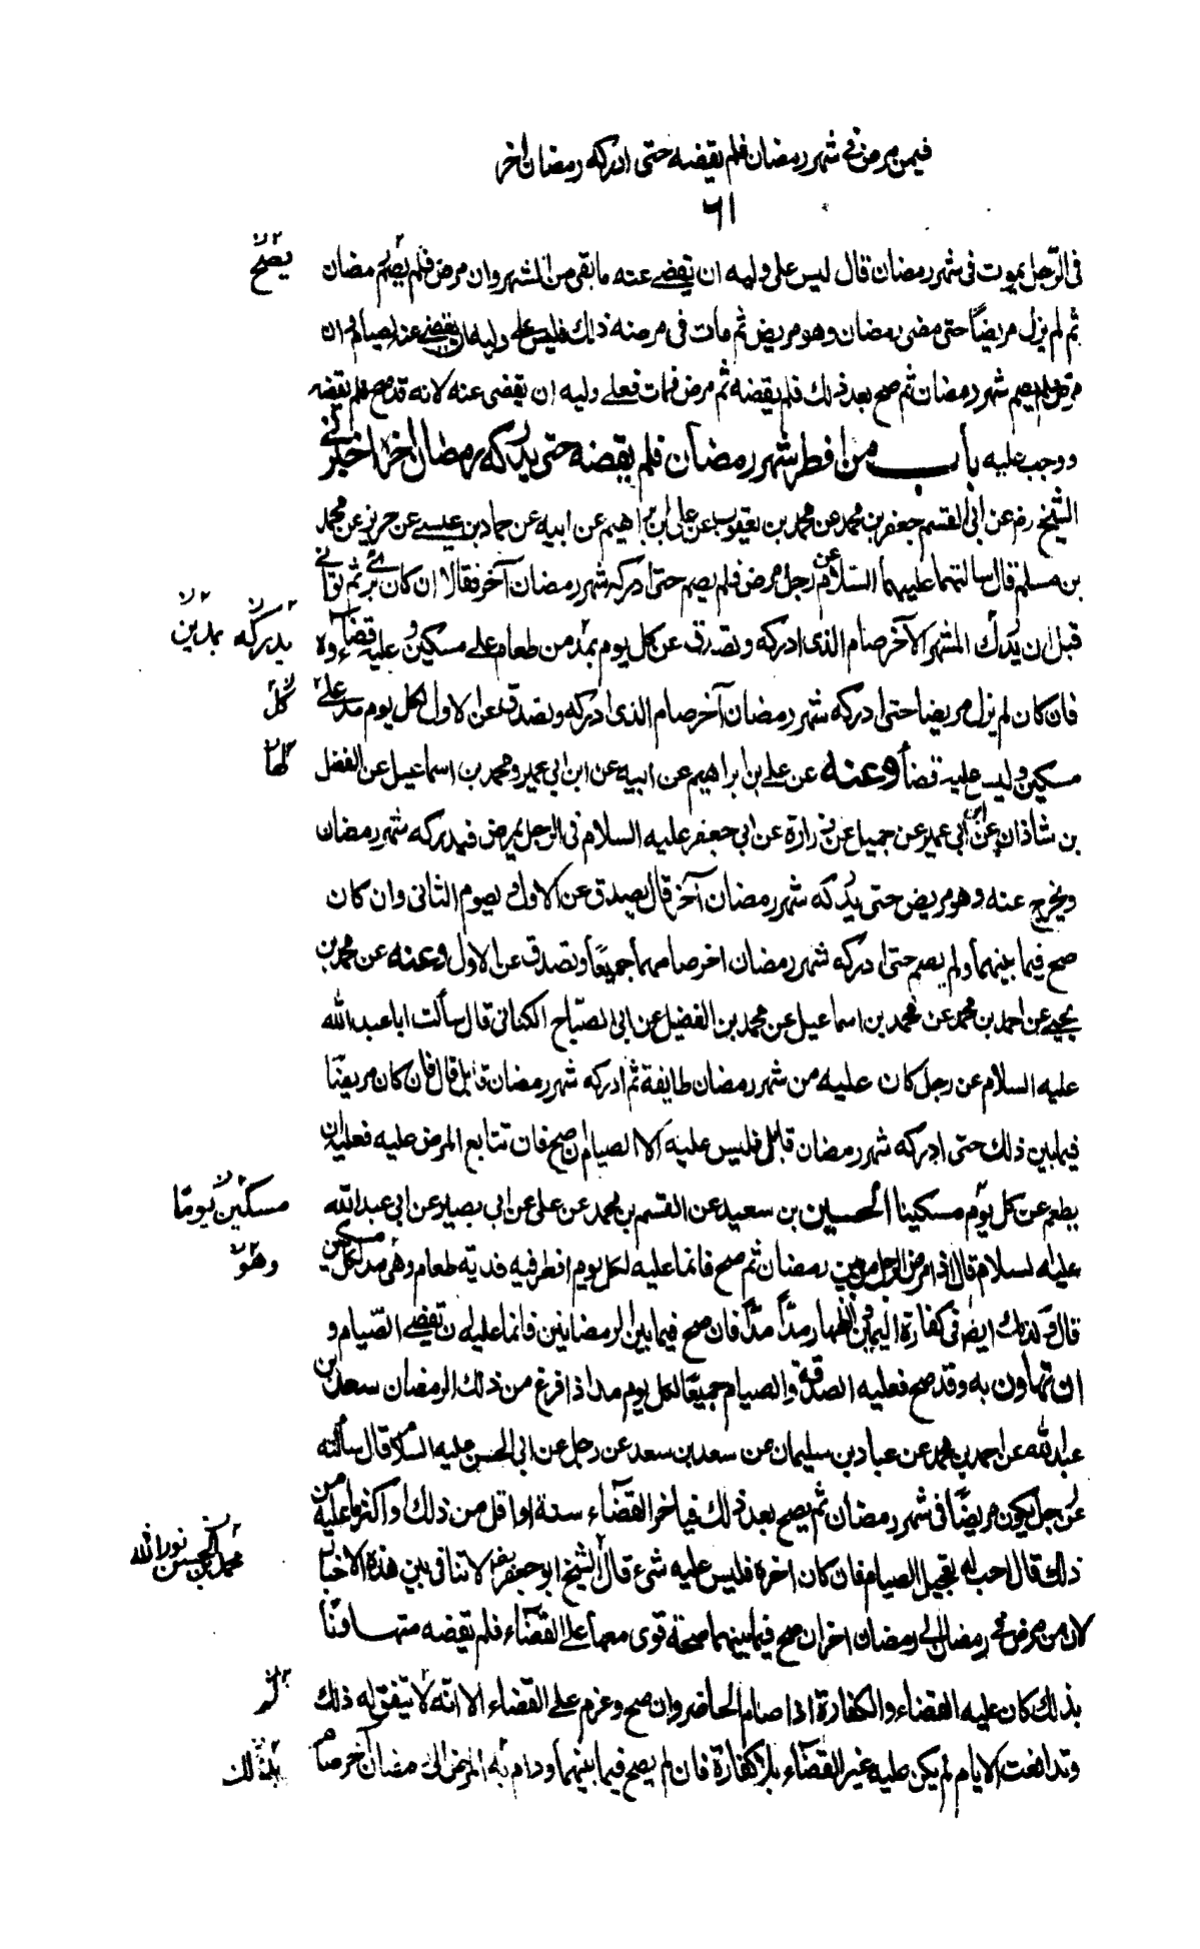 فيمن مرض في شهر رمضان فلم يقضه حتى ادركه رمضان اخر
٦١
في الرّجل يموت في شهر رمضان قال ليس على وليه ان يقضي عنه ما بقي من الشهر وان مرض فلم يصم رمضان
يصح
ثم لم يزل مريضًا حتى مضى رمضان وهو مريض ثم مات في مرضه ذلك فليس على وليه ان يقضي عنه الصيام وان
مرض فلم يصم شهر رمضان ثم صح بعد ذلك فلم يقضه ثم مرض فمات فعلى وليه ان يقضى عنه لانه قد صح فلم يقضه
ووجب عليه باب من افطر شهر رمضان فلم يقضه حتى يدركه رمضان اخر اخبرني
الشيخ ره عن ابي القسم جعفر بن محمد عن محمد بن يعقوب عن علي بن ابراهيم عن ابيه عن حماد بن عيسى عن حريز عن محمد
بن مسلم قال سالتهما عليهما السّلام عن رجل مرض فلم يصم حتى ادركه شهر رمضان آخر فقالا ان كان برئ ثم توانى
قبل ان يدرك الشهر الآخر صام الذى ادركه وتصدق عن كل يوم بمدّ من طعام على مسكين وعليه قضاءوه
يدركه بمدين
فان كان لم يزل مريضا حتى ادركه شهر رمضان آخر صام الذى ادركه وتصدق عن الاول لكل يوم مد على
كلّ
مسكين وليس عليه قضأ وعنه عن علي بن ابراهيم عن ابيه عن ابن ابي عمير ومحمد بن اسماعيل عن الفضل
بن شاذان عن ابن ابي عمير عن جميل عن زرارة عن ابي جعفر عليه السلام في الرجل يمرض فيدركه شهر رمضان
ويخرج عنه وهو مريض حتى يدركه شهر رمضان آخر قال يصدق عن الاول ويصوم الثاني وان كان
صح فيما بينهما ولم يصم حتى ادركه شهر رمضان اخر صامهما جميعًا وتصدق عن الاول وعنه عن محمد بن
يحيى عن احمد بن محمد عن محمد بن اسماعيل عن محمد بن الفضيل عن ابي الصبّاح الكناني قال سألت ابا عبد الله
عليه السلام عن رجل كان عليه من شهر رمضان طايفة ثم ادركه شهر رمضان قابل قال فان كان مريضًا
فيما بين ذلك حتى ادركه شهر رمضان قابل فليس عليه الا الصيام ان صح فان تتابع المرض عليه فعليه ان
يطعم عن كل يوم مسكينا الحسين بن سعيد عن القسم بن محمد عن علي عن ابي بصير عن ابي عبد الله
مسكين يومًا
عليه السلام قال اذا مرض الرجل من رمضان ثم صح فانما عليه لكل يوم افطر فيه فدية طعام وهى مد لكل مسكين
وهو
قال وكذلك ايضا في كفارة اليمين وكفارة الظهار مدًّا مدًّا فان صح فيما بين الرمضانين فانما عليه ان يقضي الصّيام و
ان تهاون به وقد صح فعليه الصدقة والصيام جميعًا لكل يوم مد اذا فرغ من ذلك الرمضان سعد بن
عبد الله عن احمد بن محمد عن عباد بن سليمان عن سعد بن سعد عن رجل عن ابي الحسن عليه السلام قال سألته
عن رجل يكون مريضًا في شهر رمضان ثم يصح بعد ذلك فياخر القضاء سنة او اقل من ذلك او اكثر ما عليه من
ذلك قال احب له تعجيل الصيام فان كان اخره فليس عليه شيء قال الشيخ ابو جعفر لا تنافى بين هذه الاخبار
محمد بن الحسن نور الله
لان من مرض في رمضان الى رمضان اخر ان صح فيما بينهما صحة قوى معها على القضاء فلم يقضه متهاونًا
بذلك كان عليه القضاء والكفارة اذا صام الحاضر وان صح وعزم على القضاء الا انّه لا يتفق له ذلك
لم
وتدافعت الايام لم يكن عليه غير القضاء بلا كفارة فان لم يصح فيما بينهما ودام به المرض الى رمضان آخر صام